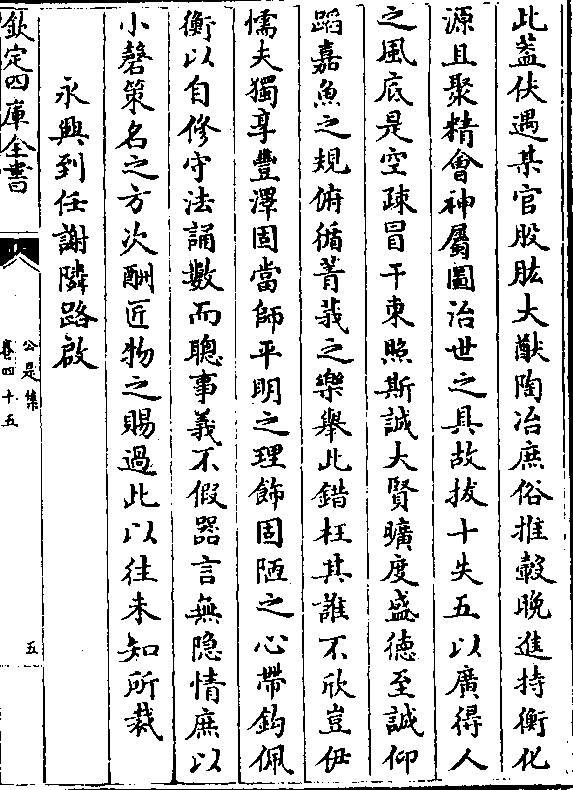 此蓋伏遇某官股肱大猷陶冶庶俗推轂晚進持衡化
源且聚精會神屬圖治世之具故拔十失五以廣得人
之風底是空疎冒干東照斯誠大賢曠度盛德至誠仰
蹈嘉魚之規俯循菁莪之樂舉此錯枉其誰不欣豈伊
懦夫獨享豐澤固當師平明之理飾固陋之心帶鈎佩
衡以自修守法誦數而聰事義不假器言無隐情庶以
小磬策名之方次酬匠物之賜過此以往未知所裁
永興到任謝隣路啟
欽定四庫全書
公是集
卷四十五
五